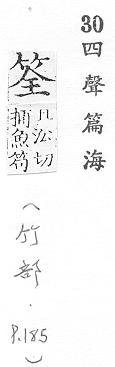 30 四聲篇海
筌
㳂切
捕魚笱
(竹部．P.185)